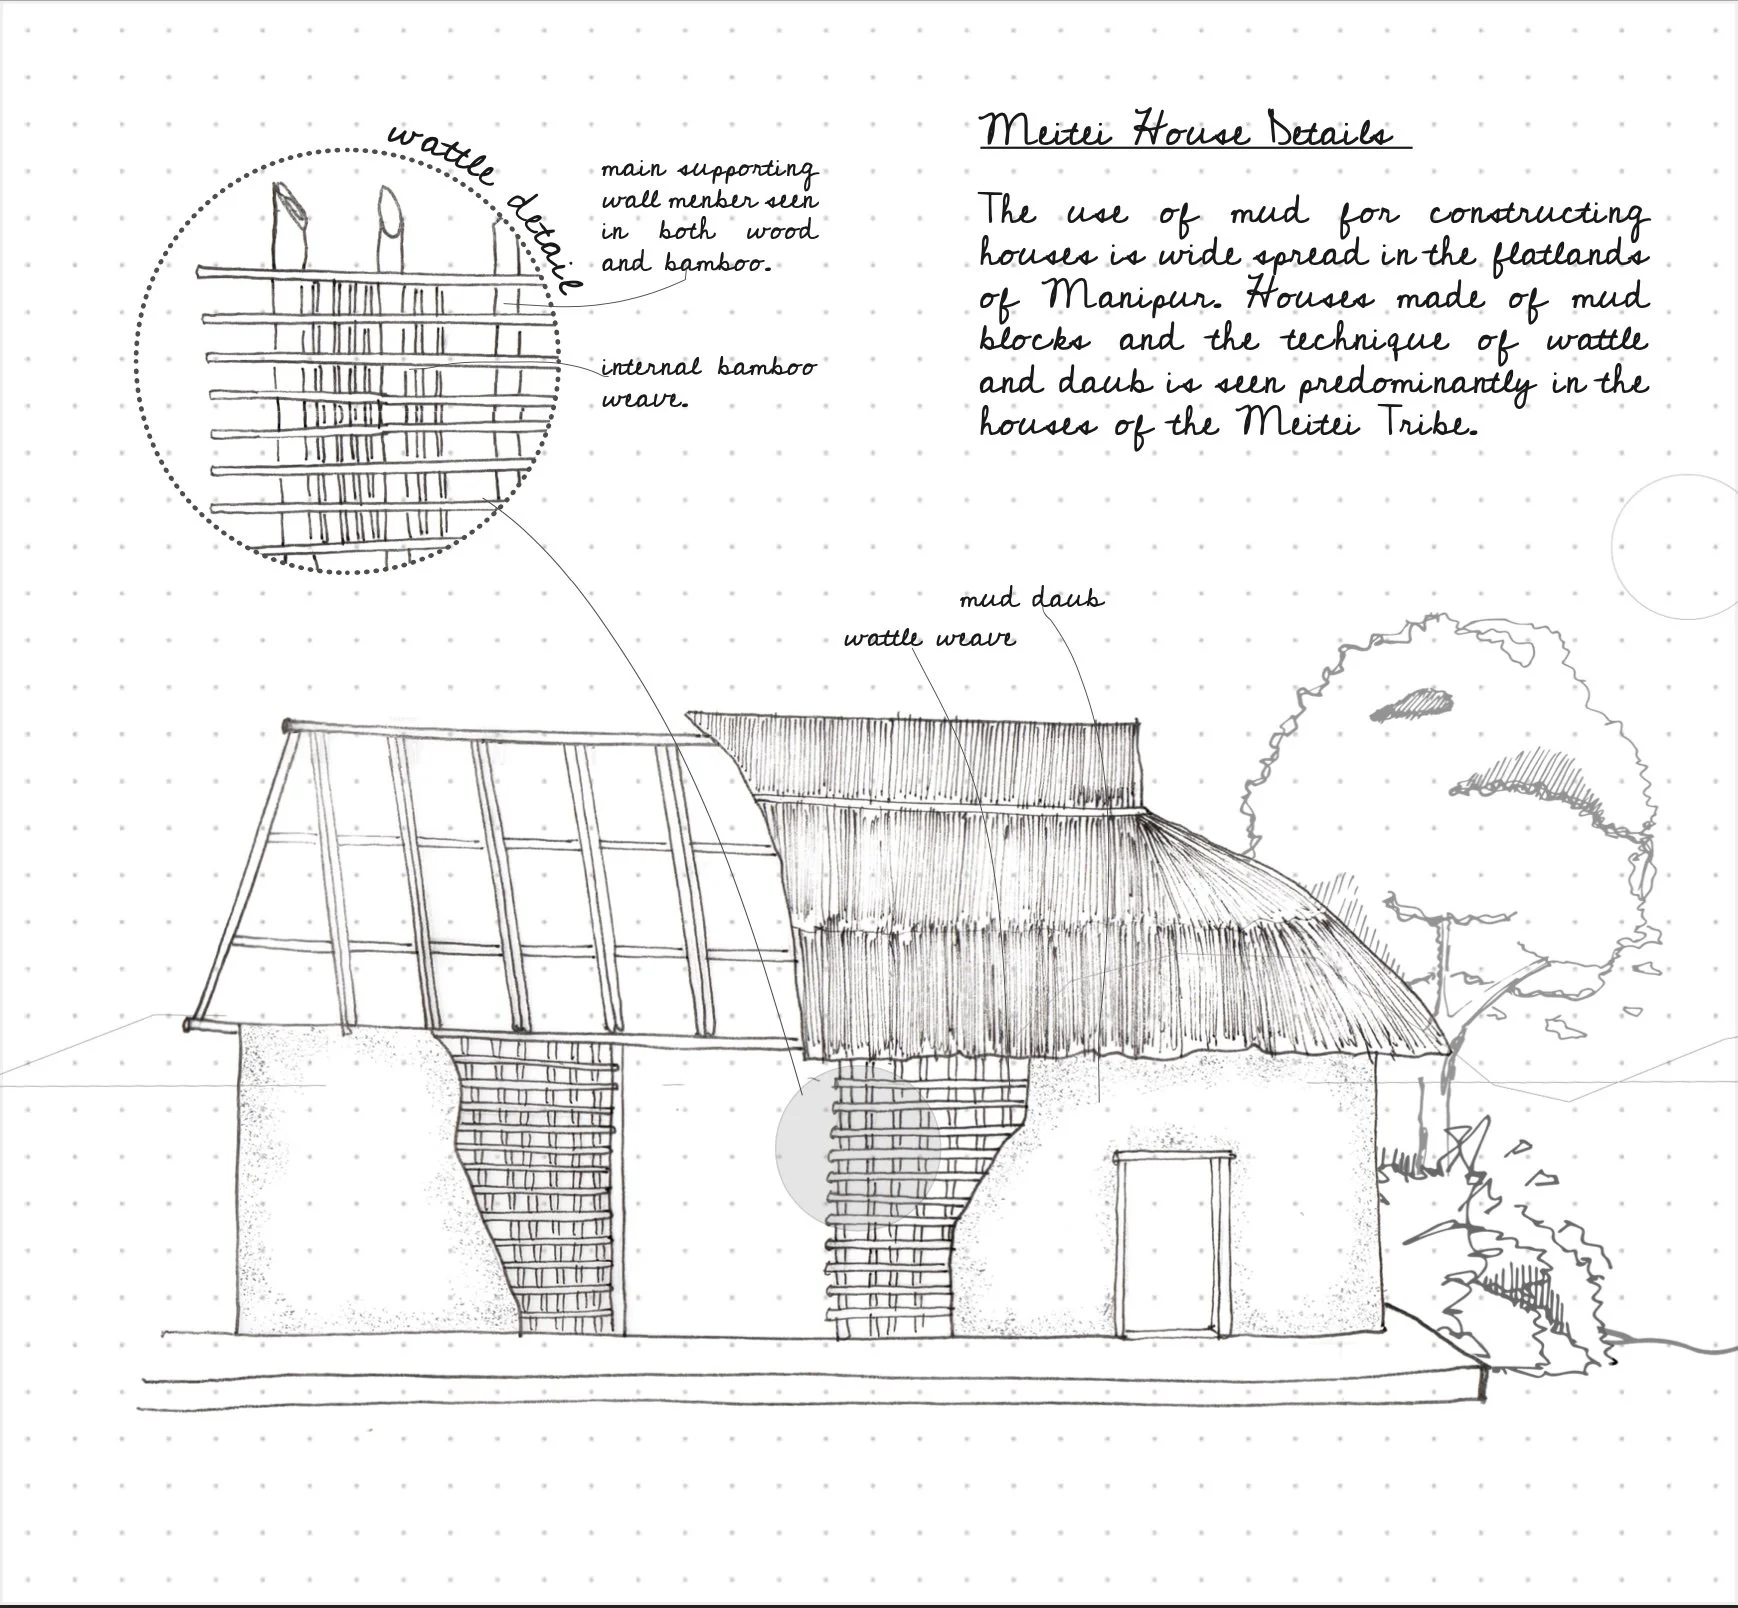 wattle detail
main supporting
wall menber seen
in both wood
and bamboo.
internal bamboo
weave.
Meitei House Details
The use of mud for constructing
houses is wide spread in the flatlands
of Manipur. Houses made of mud
blocks and the technique of wattle
and daub is seen predominantly in the
houses of the Meitei Tribe.
mud daub
wattle weave